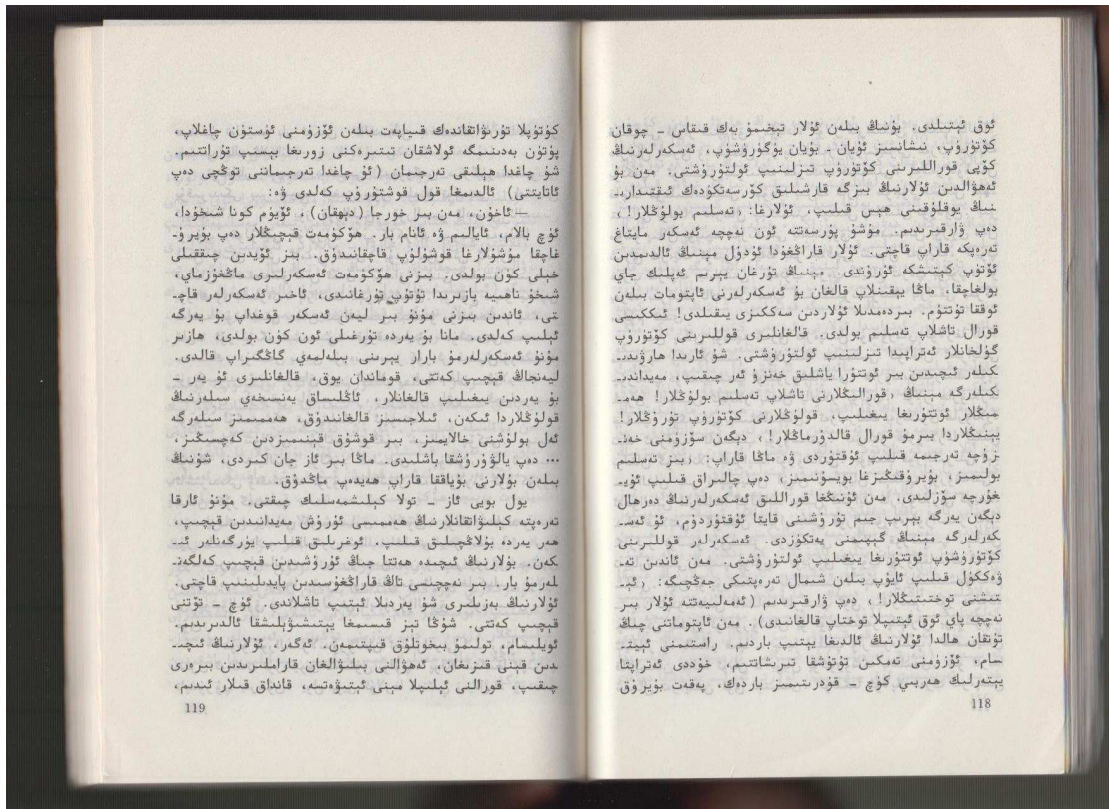 ئوق ئېتىلدى. بۇنىڭ بىلەن ئۇلار تېخىمۇ بەك قىقاس ـ چوقان
كۆتۈرۈپ، نىشانسىز ئۇيان ـ بۇيان يۈگۈرۈشۈپ، ئەسكەرلەرنىڭ
كۆپى قوراللىرىنى كۆتۈرۈپ تىزلىنىپ ئولتۇرۇشتى. مەن بۇ
ئەھۋالدىن ئۇلارنىڭ بىزگە قارشىلىق كۆرسەتكۈدەك ئىقتىدارىـ
نىڭ يوقلۇقىنى ھېس قىلىپ، ئۇلارغا: ‹تەسلىم بولۇڭلار!›
دەپ ۋارقىرىدىم. مۇشۇ پۇرسەتتە ئون نەچچە ئەسكەر مايتاغ
تەرەپكە قاراپ قاچتى. ئۇلار قاراڭغۇدا ئۇدۇل مېنىڭ ئالدىمدىن
ئۆتۈپ كېتىشكە ئۇرۇندى. مېنىڭ تۇرغان يېرىم ئەپلىك جاي
بولغاچقا، ماڭا يېقىنلاپ قالغان بۇ ئەسكەرلەرنى ئاپتومات بىلەن
ئوققا تۇتتۇم. بىردەمدىلا ئۇلاردىن سەككىزى يىقىلدى! ئىككىسى
قورال تاشلاپ تەسلىم بولدى. قالغانلىرى قوللىرىنى كۆتۈرۈپ
گۈلخانلار ئەتراپىدا تىزلىنىپ ئولتۇرۇشتى. شۇ ئارىدا ھارۋىدىـ
كىلەر ئىچىدىن بىر ئوتتۇرا ياشلىق خەنزۇ ئەر چىقىپ، مەيداندىـ
كىلەرگە مېنىڭ ‹قورالىڭلارنى تاشلاپ تەسلىم بولۇڭلار! ھەمـ
مىڭلار ئوتتۇرىغا يىغىلىپ، قولۇڭلارنى كۆتۈرۈپ تۇرۇڭلار!
يېنىڭلاردا بىرمۇ قورال قالدۇرماڭلار!› دېگەن سۆزۈمنى خەنـ
زۇچە تەرجىمە قىلىپ ئۇقتۇردى ۋە ماڭا قاراپ: ‹بىز تەسلىم
بولىمىز، بۇيرۇقىڭىزغا بويسۇنىمىز› دەپ چالىراق قىلىپ ئۇيـ
غۇرچە سۆزلىدى. مەن ئۇنىڭغا قوراللىق ئەسكەرلەرنىڭ دەرھال
دېگەن يەرگە بېرىپ جىم تۇرۇشىنى قايتا ئۇقتۇردۇم، ئۇ ئەسـ
كەرلەرگە مېنىڭ گېپىمنى يەتكۈزدى. ئەسكەرلەر قوللىرىنى
كۆتۈرۈشۈپ ئوتتۇرىغا يىغىلىپ ئولتۇرۇشتى. مەن ئاندىن تەـ
ۋەككۈل قىلىپ ئايۇپ بىلەن شىمال تەرەپتىكى جەڭچىگە: ‹ئېـ
تىشنى توختىتىڭلار!› دەپ ۋارقىرىدىم (ئەمەلىيەتتە ئۇلار بىر
نەچچە پاي ئوق ئېتىپلا توختاپ قالغانىدى). مەن ئاپتوماتنى چىڭ
تۇتقان ھالدا ئۇلارنىڭ ئالدىغا يېتىپ باردىم. راستىمنى ئېيتـ
سام، ئۆزۈمنى تەمكىن تۇتۇشقا تىرىشاتتىم، خۇددى ئەتراپتا
يېتەرلىك ھەربىي كۈچ ـ قۇدرىتىمىز باردەك، پەقەت بۇيرۇق
118
كۈتۈپلا تۇرىۋاتقاندەك قىياپەت بىلەن ئۆزۈمنى ئۈستۈن چاغلاپ،
پۈتۈن بەدىنىمگە ئولاشقان تىترەكنى زورىغا بېسىپ تۇراتتىم.
شۇ چاغدا ھېلىقى تەرجىمان (ئۇ چاغدا تەرجىماننى توڭچى دەپ
ئاتايتتى) ئالدىمغا قول قوشتۇرۇپ كەلدى ۋە:
— ئاخۇن، مەن بىر خورجا (دېھقان)، ئۆيۈم كونا شىخۇدا،
ئۈچ بالام، ئايالىم ۋە ئانام بار. ھۆكۈمەت قېچىڭلار دەپ بۇيرۇـ
غاچقا مۇشۇلارغا قوشۇلۇپ قاچقانىدۇق. بىز ئۆيدىن چىققىلى
خېلى كۈن بولدى. بىزنى ھۆكۈمەت ئەسكەرلىرى ماڭغۇزماي،
شىخو ناھىيە بازىرىدا تۇتۇپ تۇرغانىدى، ئاخىر ئەسكەرلەر قاچـ
تى، ئاندىن بىزنى مۇنۇ بىر ليەن ئەسكەر قوغداپ بۇ يەرگە
ئېلىپ كەلدى. مانا بۇ يەردە تۇرغىلى ئون كۈن بولدى، ھازىر
مۇنۇ ئەسكەرلەرمۇ بارار يېرىنى بىلەلمەي گاڭگىراپ قالدى.
ليەنجاڭ قېچىپ كەتتى، قوماندان يوق، قالغانلىرى ئۇ يەر ـ
بۇ يەردىن يىغىلىپ قالغانلار، ئاڭلىساق يەنسىخەي سىلەرنىڭ
قولۇڭلاردا ئىكەن، ئىلاجىسىز قالغانىدۇق، ھەممىمىز سىلەرگە
ئەل بولۇشنى خالايمىز، بىر قوشۇق قېنىمىزدىن كەچسىڭىز،
... دەپ يالۋۇرۇشقا باشلىدى. ماڭا بىر ئاز جان كىردى، شۇنىڭ
بىلەن بۇلارنى بۇياققا قاراپ ھەيدەپ ماڭدۇق.
يول بويى ئاز ـ تولا كېلىشمەسلىك چىقتى. مۇنۇ ئارقا
تەرەپتە كېلىۋاتقانلارنىڭ ھەممىسى ئۇرۇش مەيدانىدىن قېچىپ،
ھەر يەردە بۇلاڭچىلىق قىلىپ، ئوغرىلىق قىلىپ يۈرگەنلەر ئىـ
كەن. بۇلارنىڭ ئىچىدە ھەتتا جىڭ ئۇرۇشىدىن قېچىپ كەلگەنـ
لەرمۇ بار. بىر نەچچىسى تاڭ قاراڭغۇسىدىن پايدىلىنىپ قاچتى.
ئۇلارنىڭ بەزىلىرى شۇ يەردىلا ئېتىپ تاشلاندى. ئۈچ ـ تۆتنى
قېچىپ كەتتى. شۇڭا تېز قىسىمغا يېتىشىۋېلىشقا ئالدىرىدىم.
ئويلىسام، تولىمۇ بىخوتلۇق قىپتىمەن. ئەگەر، ئۇلارنىڭ ئىچىـ
دىن قېنى قىزىغان، ئەھۋالنى بىلىۋالغان قاراملىرىدىن بىرەرى
چىقىپ، قورالنى ئېلىپلا مېنى ئېتىۋەتسە، قانداق قىلار ئىدىم،
119